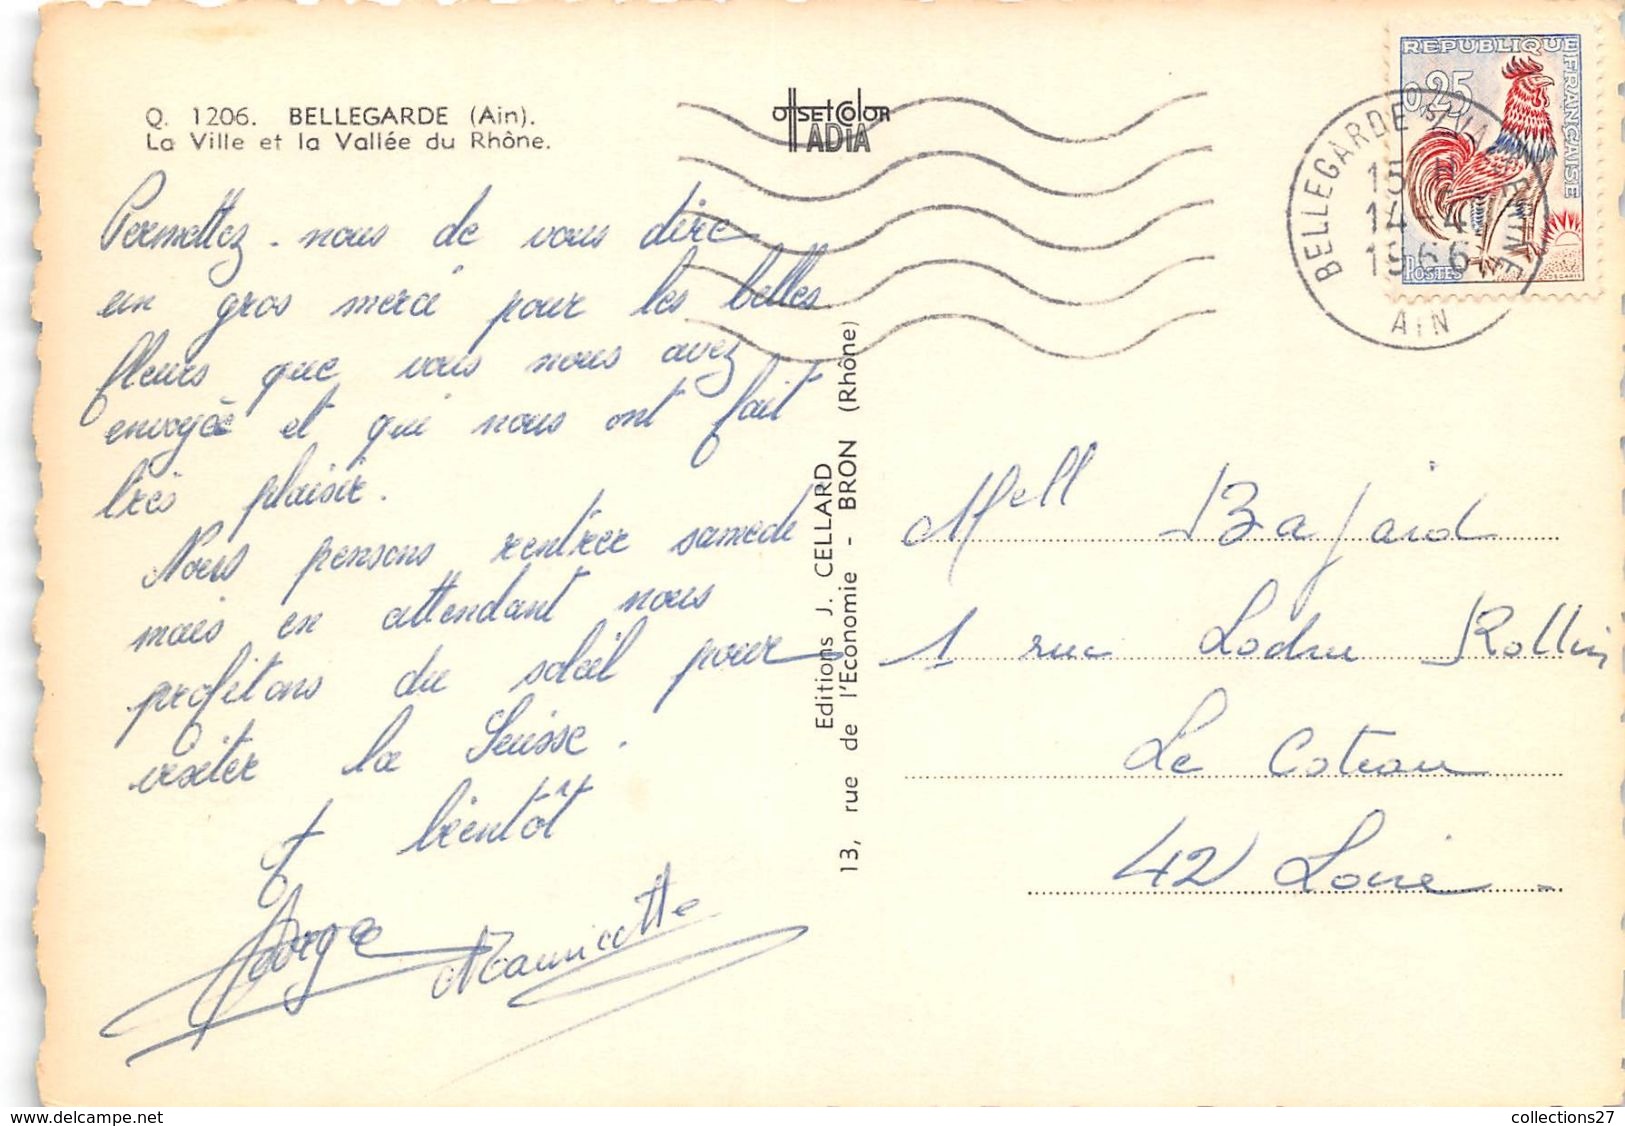 Q. 1206. BELLEGARDE (Ain).
La Ville et la Vallée du Rhône.
OffsetColor
ADIA
REPUBLIQUE FRANÇAISE
0,25
POSTES
BELLEGARDE S/ VALSERINE
18 H
14-4
1966
AIN
Permettez-nous de vous dire
un gros merci pour les belles
fleurs que vous nous avez
envoyée et qui nous ont fait
très plaisir.
Nous pensons rentrer samedi
mais en attendant nous
profitons du soleil pour
visiter la Suisse.
A bientôt
Mauricette
Editions J. CELLARD
13, rue de l'Economie - BRON (Rhône)
Mell Bajard
1 rue Ledru Rollin
Le Coteau
42 Loire
delcampe.net
collections27